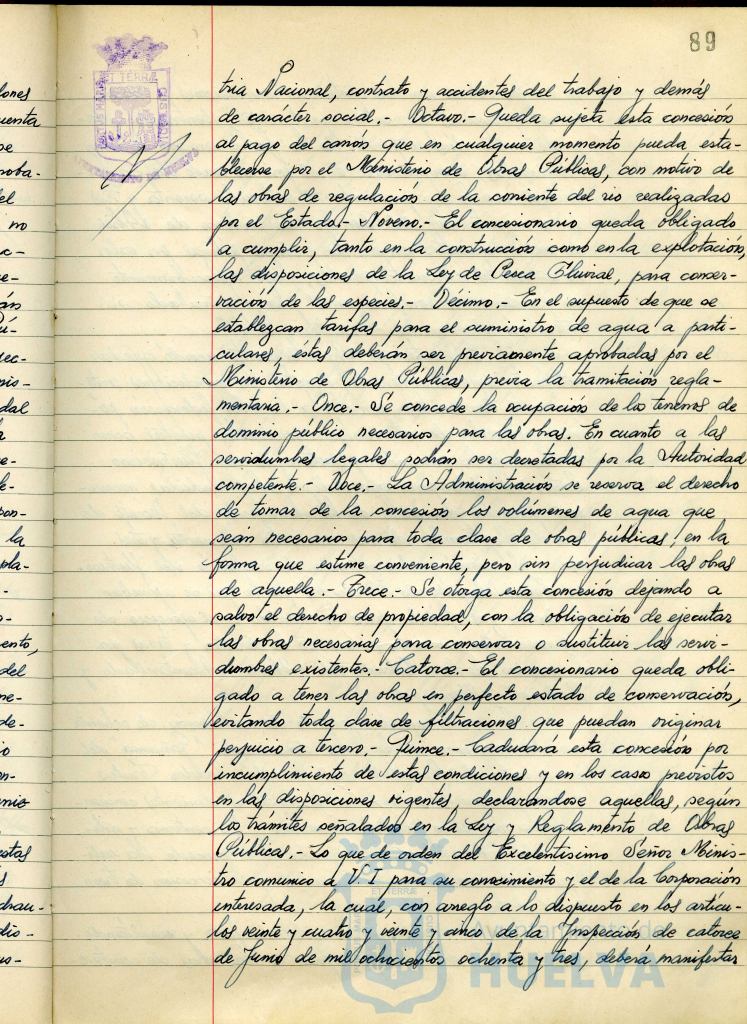 89
tria Nacional, contrato y accidentes del trabajo y demás
de carácter social.- Octavo.- Queda sujeta esta concesión
al pago del canón que en cualquier momento pueda esta-
blecerse por el Ministerio de Obras Públicas, con motivo de
las obras de regulación de la corriente del rio realizadas
por el Estado.- Noveno.- El concesionario queda obligado
a cumplir, tanto en la construcción como en la explotación,
las disposiciones de la Ley de Pesca Fluvial, para conser-
vación de las especies.- Décimo.- En el supuesto de que se
establezcan tarifas para el suministro de agua a parti-
culares, éstas deberán ser previamente aprobadas por el
Ministerio de Obras Públicas, previa la tramitación regla-
mentaria.- Once.- Se concede la ocupación de los terrenos de
dominio público necesarios para las obras. En cuanto a las
servidumbres legales podrán ser decretadas por la Autoridad
competente.- Doce.- La Administración se reserva el derecho
de tomar de la concesión los volúmenes de agua que
seán necesarios para toda clase de obras públicas, en la
forma que estime conveniente, pero sin perjudicar las obras
de aquella.- Trece.- Se otorga esta concesión dejando a
salvo el derecho de propiedad, con la obligación de ejecutar
las obras necesarias para conservar o sustituir las servi-
dumbres existentes.- Catorce.- El concesionario queda obli-
gado a tener las obras en perfecto estado de conservación,
evitando toda clase de filtraciones que puedan originar
perjuicio a tercero.- Quince.- Caducará esta concesión por
incumplimiento de estas condiciones y en los casos previstos
en las disposiciones vigentes, declarandose aquellas, según
los trámites señalados en la Ley y Reglamento de Obras
Públicas.- Lo que de orden del Excelentísimo Señor Minis-
tro comunico a V.I. para su conocimiento y el de la Corporación
interesada, la cual, con arreglo a lo dispuesto en los artícu-
los veinte y cuatro y veinte y cinco de la Inspección de catorce
de Junio de mil ochocientos ochenta y tres, deberá manifestar
HUELVA